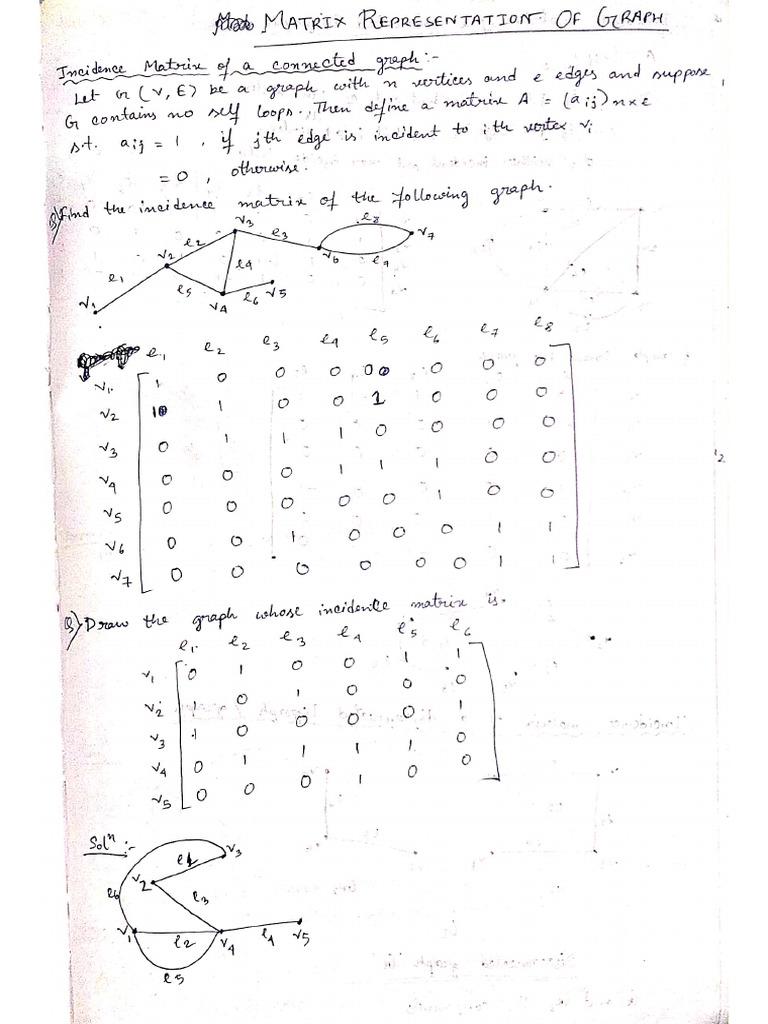 MATRIX REPRESENTATION OF GRAPH
Incidence Matrix of a connected graph:-
Let G (V, E) be a graph with n vertices and e edges and suppose
G contains no self loops. Then define a matrix A = (aij) n×e
s.t. aij = 1, if jth edge is incident to ith vertex vi
= 0, otherwise.
Q) Find the incidence matrix of the following graph.
e8
v3
e3
v7
e2
v2
v6
e1
e4
e7
e5
v5
e6
v4
v1
e1 e2 e3 e4 e5 e6 e7 e8
v1 1 0 0 0 0 0 0 0
v2 1 1 0 0 1 0 0 0
v3 0 1 1 1 0 0 0 0
v4 0 0 0 1 1 1 0 0
v5 0 0 0 0 0 1 0 0
v6 0 0 1 0 0 0 1 1
v7 0 0 0 0 0 0 1 1
Q) Draw the graph whose incidence matrix is.
e1 e2 e3 e4 e5 e6
v1 0 1 0 0 1 1
v2 1 0 1 0 0 0
v3 1 0 0 0 0 1
v4 0 1 1 1 1 0
v5 0 0 0 1 0 0
Soln:-
v3
e1
v2
e6
e3
v1
e2
v4
e4
v5
e5